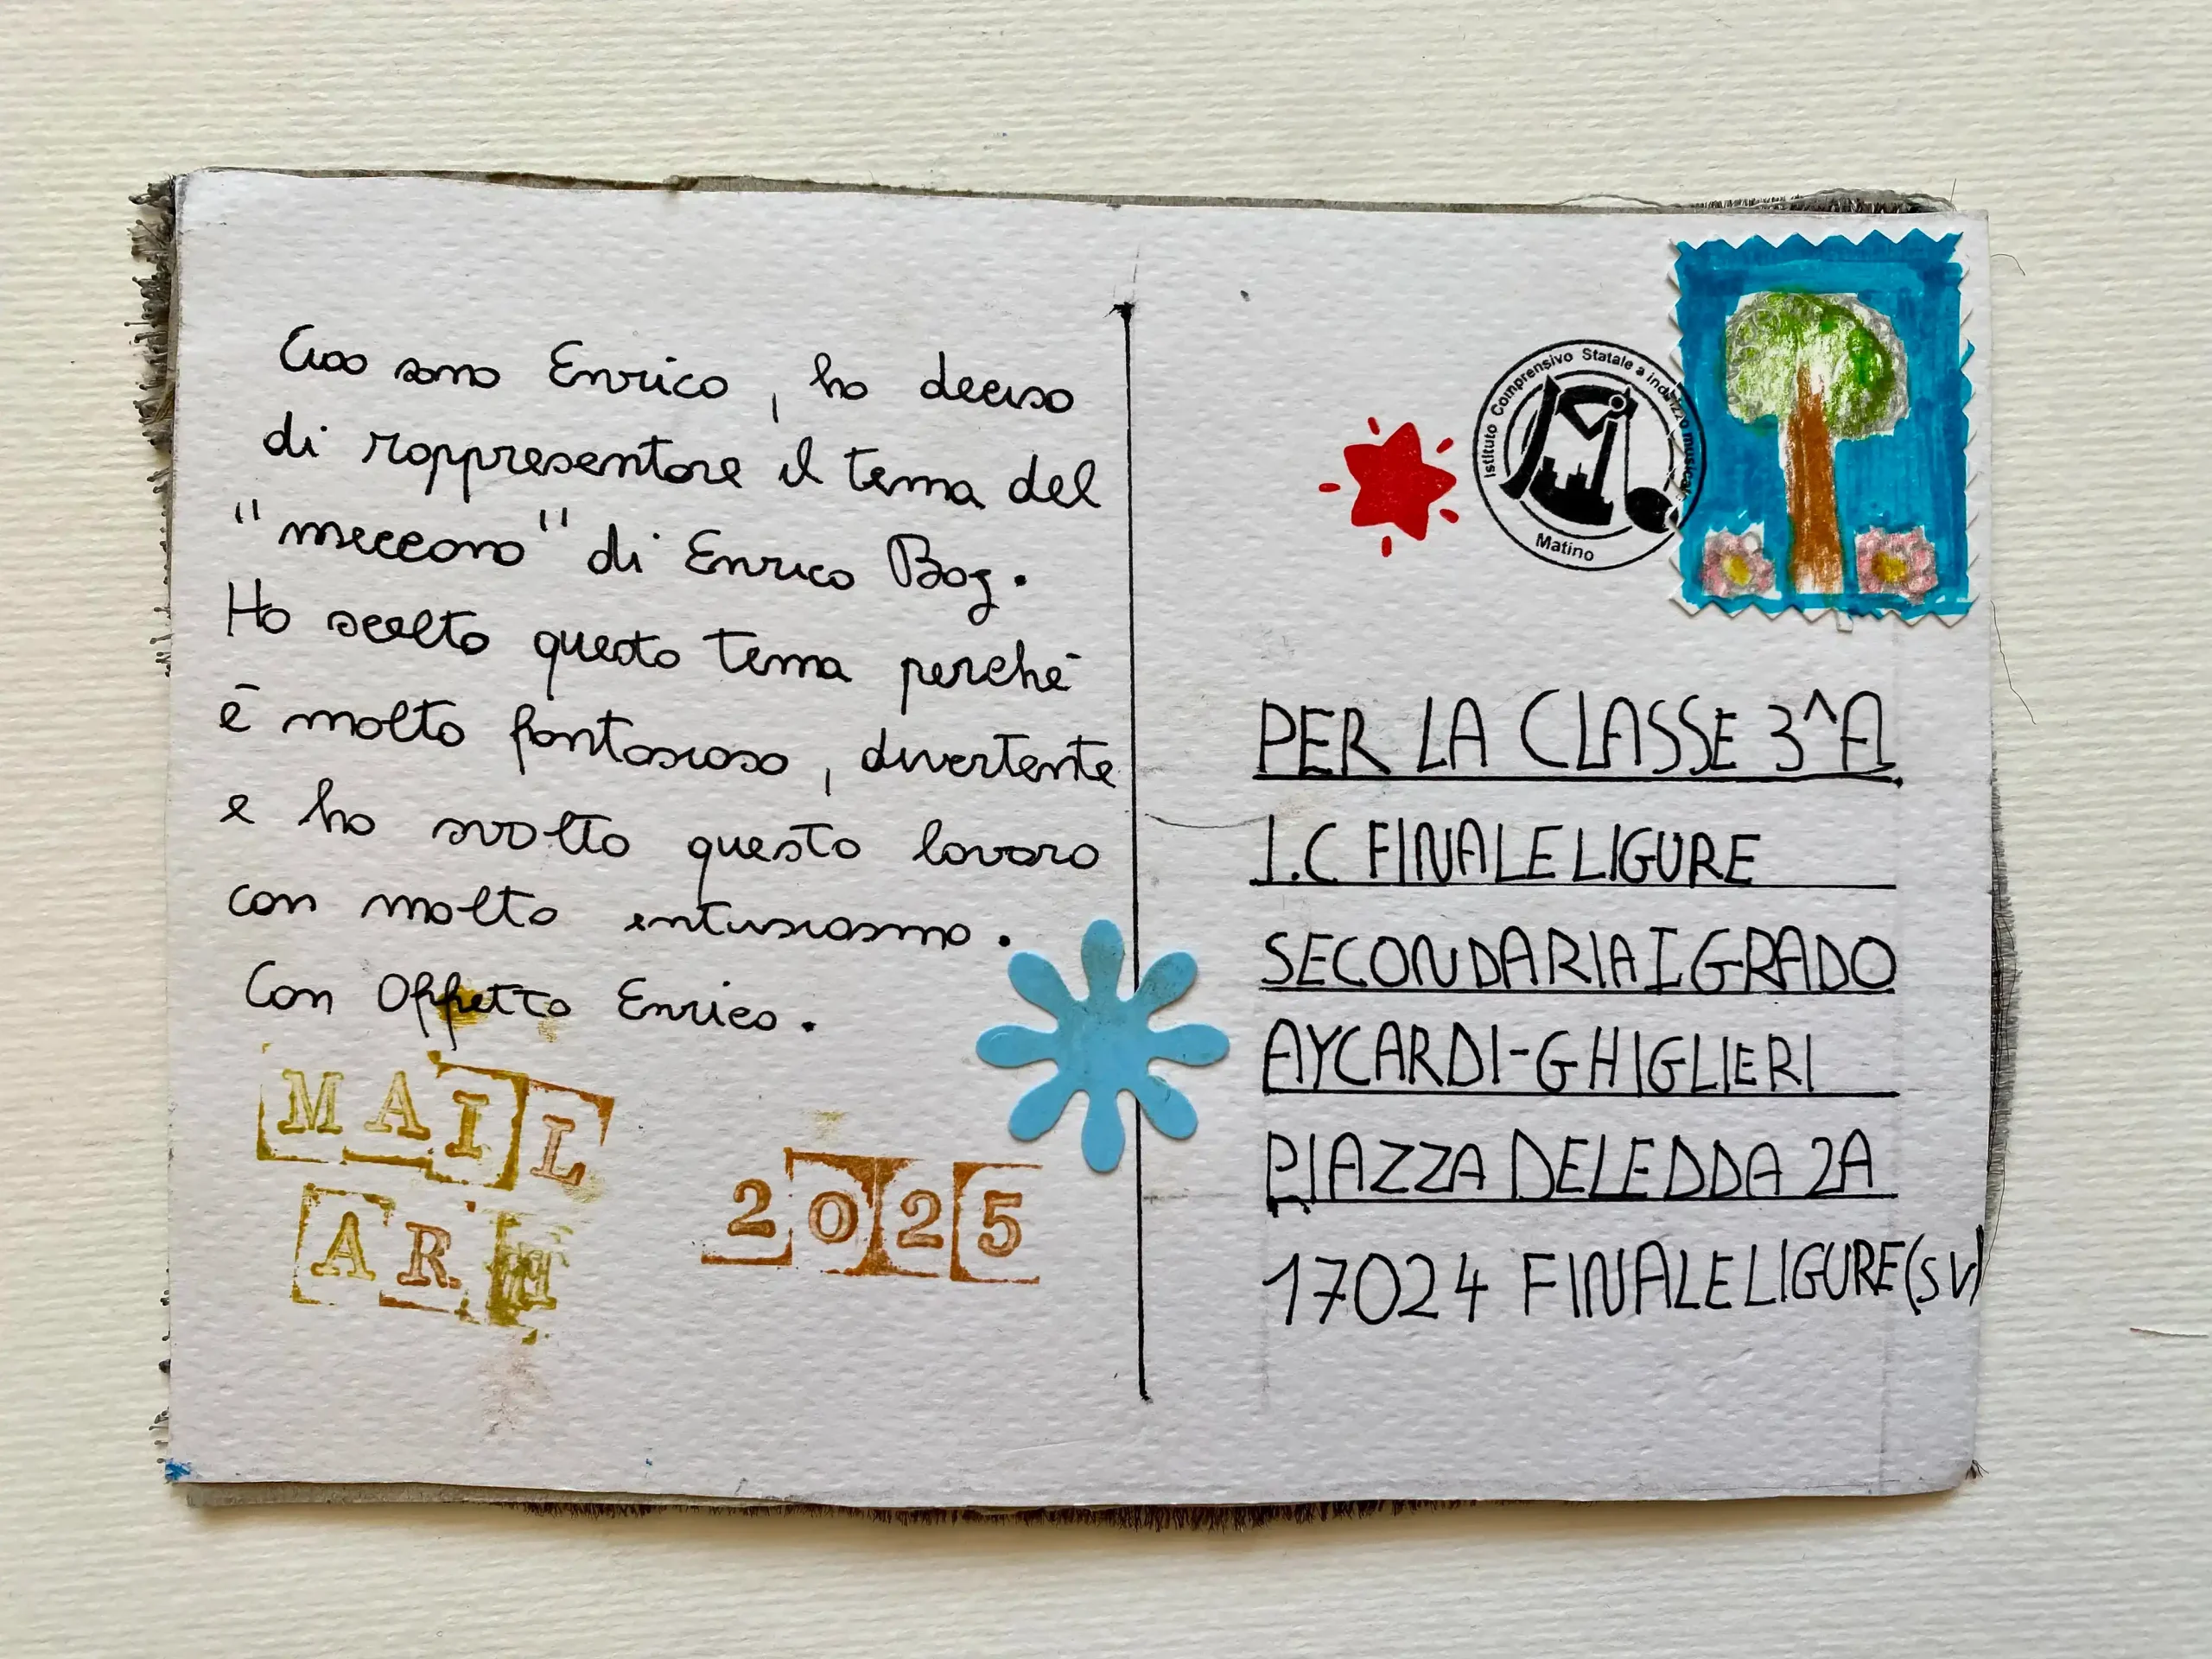 Ciao sono Enrico, ho deciso
di rappresentare il tema del
"meccano" di Enrico Baj.
Ho scelto questo tema perché
è molto fantasioso, divertente
e ho svolto questo lavoro
con molto entusiasmo.
Con Affetto Enrico.
MAIL
ART
2025
Istituto Comprensivo Statale a indirizzo musicale
Matino
PER LA CLASSE 3^A
I.C FINALE LIGURE
SECONDARIA I GRADO
AYCARDI-GHIGLIERI
PIAZZA DELEDDA 2A
17024 FINALE LIGURE (SV)